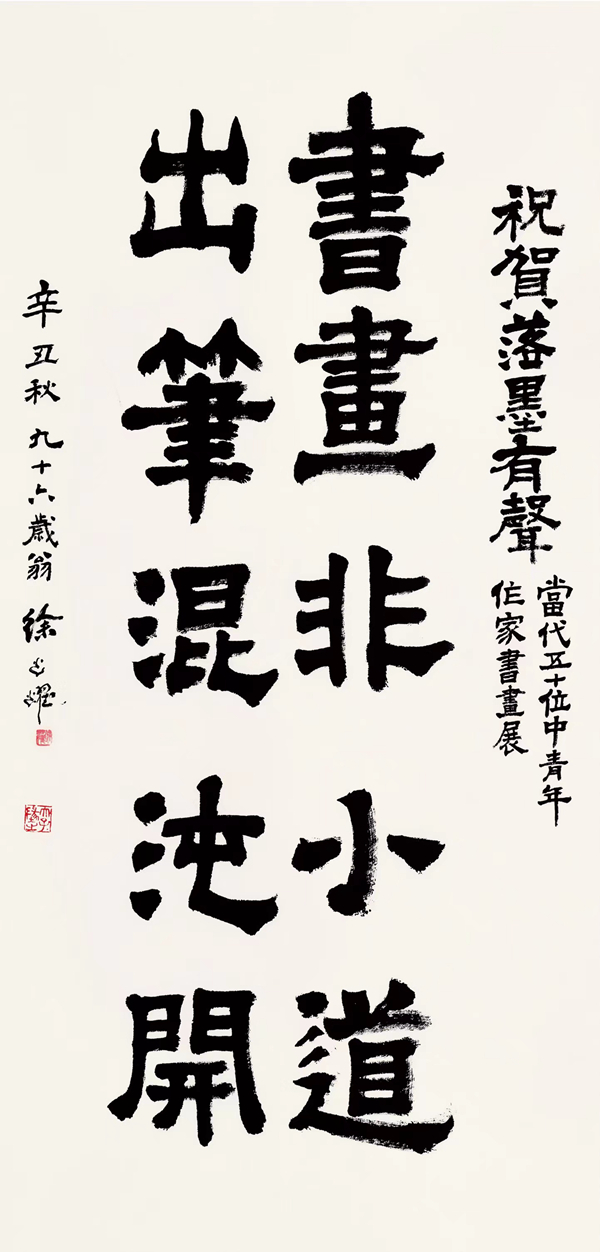 祝賀落墨有聲
當代五十位中青年
作家書畫展
書畫非小道
出筆混沌開
辛丑秋九十六歲翁徐光耀